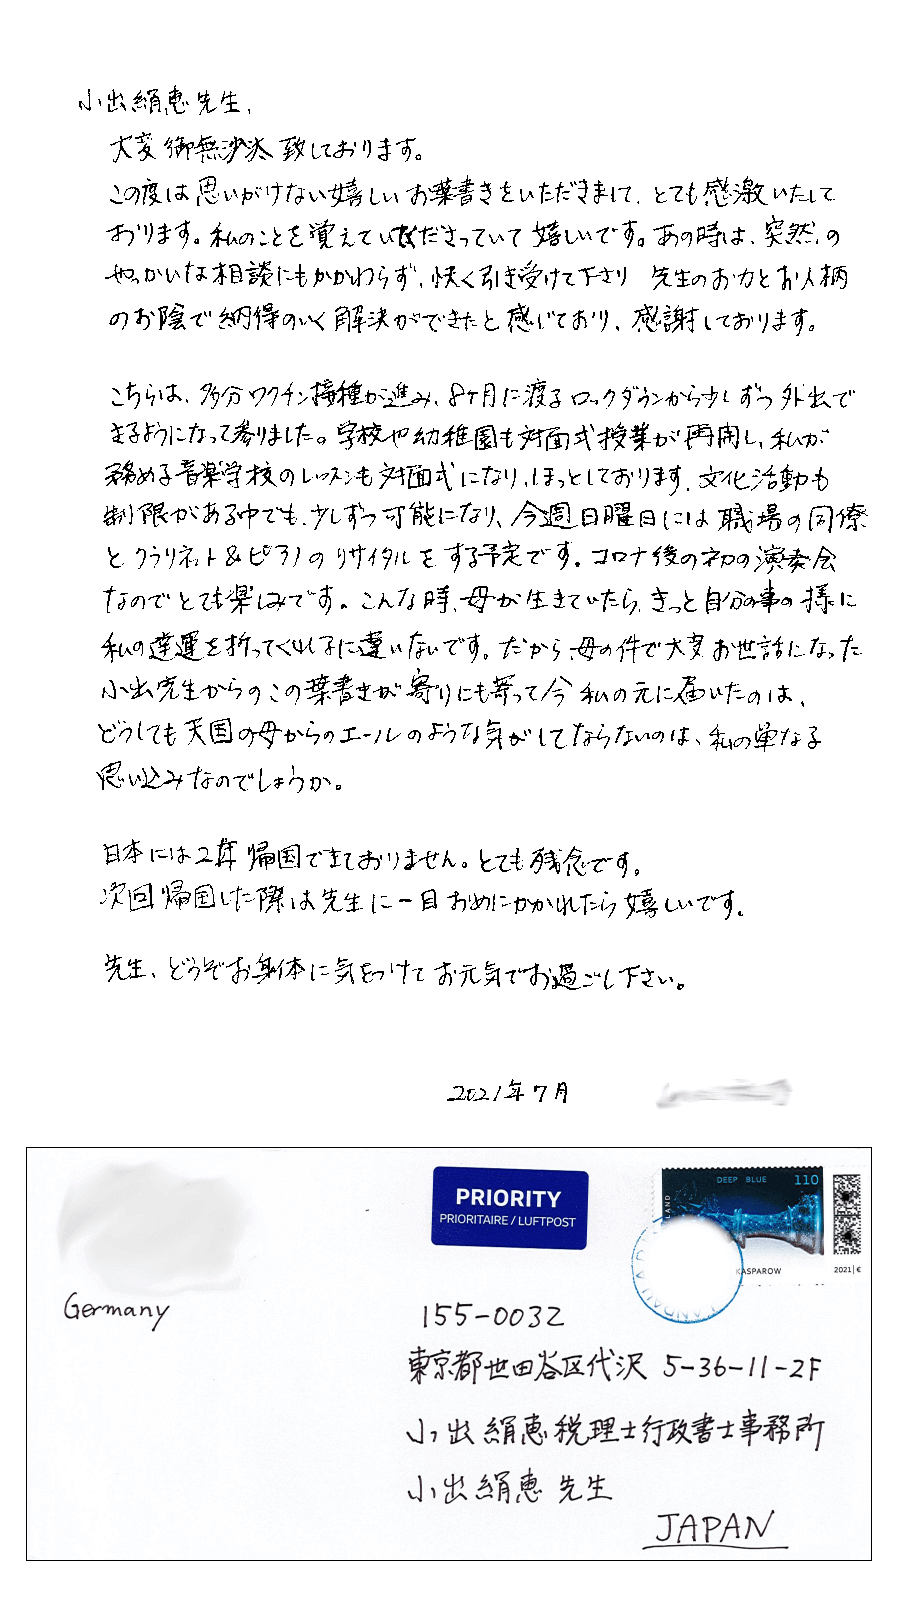 小出絹恵先生、
大変御無沙汰致しております。
この度は思いがけない嬉しいお葉書きをいただきまして、とても感激いたして
おります。私のことを覚えていてくださっていて嬉しいです。あの時は、突然の
やっかいな相談にもかかわらず、快く引き受けて下さり 先生のお力とお人柄
のお陰で納得のいく解決ができたと感じており、感謝しております。
こちらは、多分ワクチン接種が進み、8ヶ月に渡るロックダウンから少しずつ外出で
きるようになって参りました。学校や幼稚園も対面式授業が再開し、私が
務める音楽学校のレッスンも対面式になり、ほっとしております。文化活動も
制限がある中でも、少しずつ可能になり、今週日曜日には職場の同僚
とクラリネット&ピアノのリサイタルをする予定です。コロナ後の初の演奏会
なのでとても楽しみです。こんな時、母が生きていたら、きっと自分の事の様に
私の幸運を祈ってくれるに違いないです。だから、母の件で大変お世話になった
小出先生からのこの葉書きが寄りにも寄って今私の元に届いたのは、
どうしても天国の母からのエールのような気がしてならないのは、私の単なる
思い込みなのでしょうか。
日本には2年帰国できておりません。とても残念です。
次回帰国した際は先生に一目おめにかかれたら嬉しいです。
先生、どうぞお身体に気をつけてお元気でお過ごし下さい。
2021年7月
PRIORITY
PRIORITAIRE / LUFTPOST
DEEP BLUE 110
KASPAROW
2021 | €
Germany
155-0032
東京都世田谷区代沢 5-36-11-2F
小出絹恵税理士行政書士事務所
小出絹恵 先生
JAPAN